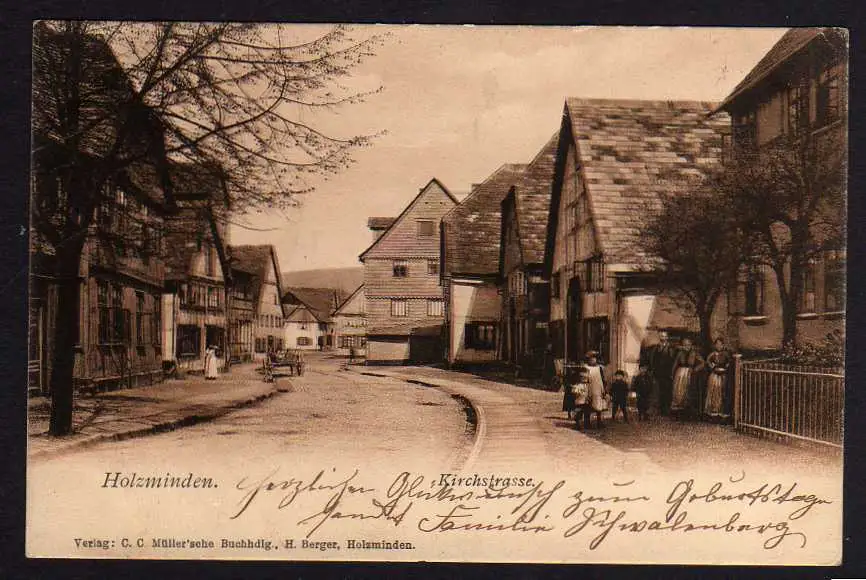 Holzminden. Kirchstrasse.
Herzlichen Glückwunsch zum Geburtstage
sendet Familie Schwalenberg
Verlag: C. C. Müller'sche Buchhdlg., H. Berger, Holzminden.